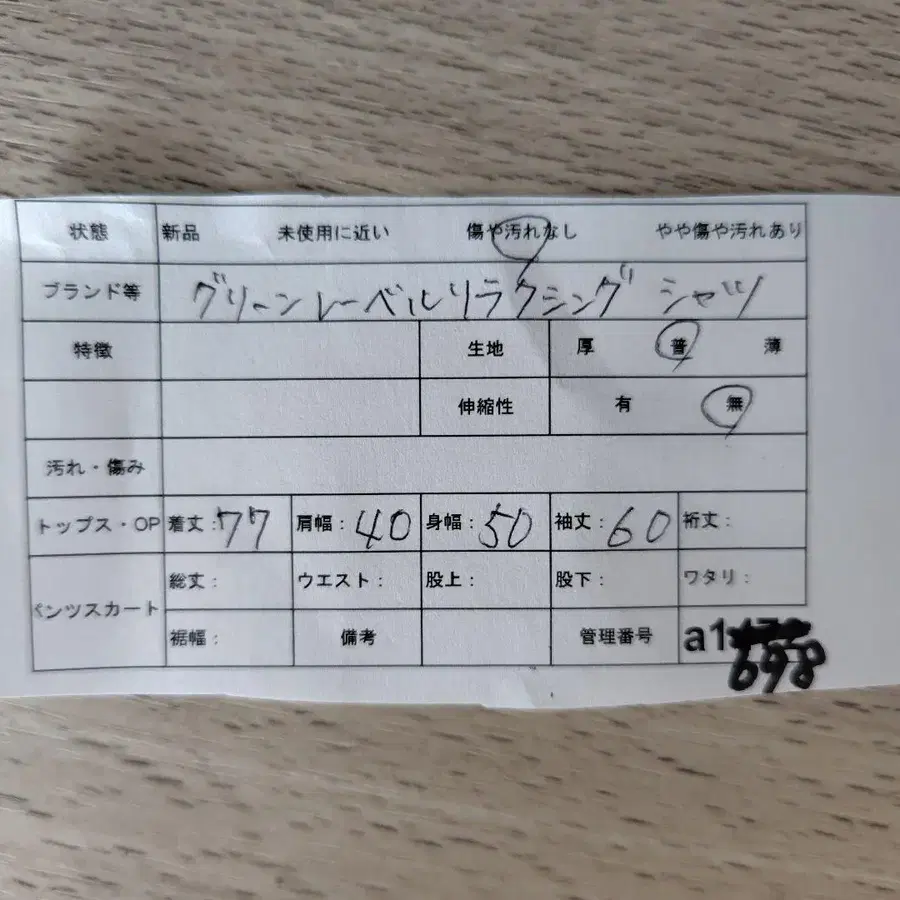 状態 新品 未使用に近い 傷や汚れなし やや傷や汚れあり
ブランド等 グリーンレーベルリラクシング シャツ
特徴 生地 厚 普 薄
伸縮性 有 無
汚れ・傷み
トップス・OP 着丈:77 肩幅:40 身幅:50 袖丈:60 裄丈:
パンツスカート 総丈: ウエスト: 股上: 股下: ワタリ:
裾幅: 備考 管理番号 a1698